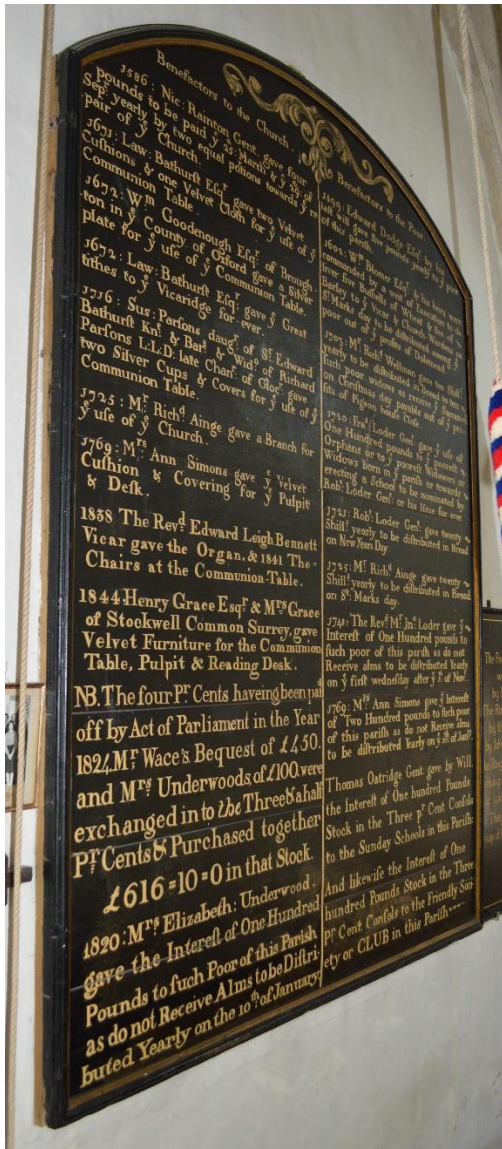 Benefactors to the Church.
1586: Nic: Rainton Gent. gave four
Pounds to be paid yᵉ 25: March & yᵉ 29 of
Sepʳ: yearly by two equal potions towards yᵉ re
pair of yᵉ Church.
1651: Law: Bathurst Esqʳ gave two Velvet
Cuſhions & one Velvet Cloth for yᵉ uſe of yᵉ
Communion Table.
1672: Wᵐ Goodenough Esqʳ: of Brough-
-ton in yᵉ County of Oxford gave a Silver
plate for yᵉ uſe of yᵉ Communion Table.
1672: Law: Bathurſt Esqʳ: gave yᵉ Great
tithes to yᵉ Vicaridge for ever.
1716: Sus: Parſons daugʳ: of Sʳ: Edward
Bathurſt Knᵗ: & Barᵗ: & Widʷ: of Richard
Parſons L:L:D: late Chanʳ: of Glocʳ: gave yᵉ
two Silver Cups & Covers for yᵉ uſe of yᵉ
Communion Table.
1725: Mʳ: Richᵈ Ainge gave a Branch for
yᵉ uſe of yᵉ Church.
1769: Mʳˢ Ann Simons gave yᵉ Velvet
Cuſhion & Covering for yᵉ Pulpit
& Deſk.
1838 The Revᵈ Edward Leigh Bennett
Vicar gave the Organ, & 1841 The
Chairs at the Communion-Table.
1844 Henry Grace Esqʳ & Mʳˢ Grace
of Stockwell Common Surrey, gave
Velvet Furniture for the Communion
Table, Pulpit & Reading Desk.
NB. The four Pʳ Cents haveing been paid
off by Act of Parliament in the Year
1824. Mʳ Wace's Bequest of £450.
and Mʳˢ Underwoods, of £100. were
exchanged in to the Three & a half
Pʳ Cents & Purchased together
£616=10=0 in that Stock.
1820: Mʳˢ Elizabeſh: Underwood.
gave the Intereſt of One Hundred
Pounds to ſuch Poor of this Parish
as do not Receive Alms to be Diſtri-
buted Yearly on the 10ᵗʰ of January.
Benefactors to the Poor.
1599: Edward Dodge Esqʳ: by his
laſt will gave five pounds yearly to yᵉ poor
of this pariſh.
1602: Wᵐ Blomer Esqʳ: & his heirs
commanded by a
liver five Buſhells of Wheat & five of
Barley to yᵉ Vicar & Church-Wardens on
Sᵗ: Marks day to be diſtributed among yᵉ
poor out of yᵉ profits of
1703: Mʳ: Richᵈ: Wellman gave ten Shillˢ:
yearly to be diſtributed in bread to
ſuch poor widows as receive yᵉ Sacramᵗ:
on Christmas day payable out of yᵉ pro-
fits of Pigeon houſe Cloſe.
1720: Fraˢ: Loder Genᵗ: gave yᵉ uſe of
One Hundred pounds to yᵉ pooreſt
Orphans or to yᵉ pooreſt Widowers or
Widows born in yᵉ pariſh or towards
erecting a School to be nominated by
Robᵗ: Loder Genᵗ: or his Heirs for ever
1721: Robᵗ: Loder Genᵗ: gave twenty
Shillˢ: yearly to be diſtributed in Bread
on New Years Day
1725: Mʳ: Richᵈ Ainge gave twenty
Shillˢ: yearly to be diſtributed in Bread
on Sᵗ: Marks day.
1741: The Revᵈ: Mʳ: Jnº: Loder gave yᵉ
Intereſt of One Hundred pounds to
ſuch poor of this pariſh as do not
Receive alms to be diſtributed Yearly
on yᵉ firſt wedneſday after yᵉ 1ˢᵗ of Novʳ.
1769: Mʳˢ Ann Simons gave yᵉ Intereſt
of Two Hundred pounds to ſuch poor
of this pariſh as do not Receive alms
to be diſtributed Yearly on yᵉ of Janʸ.
Thomas Oatridge Gent. gave by Will,
the Intereſt of One hundred Pounds
Stock in the Three pʳ Cent Conſols
to the Sunday Schools in this Pariſh:
And likewiſe the Intereſt of One
hundred Pounds Stock in the Three
pʳ Cent Conſols to the Friendly Soci-
ety or CLUB in this Pariſh